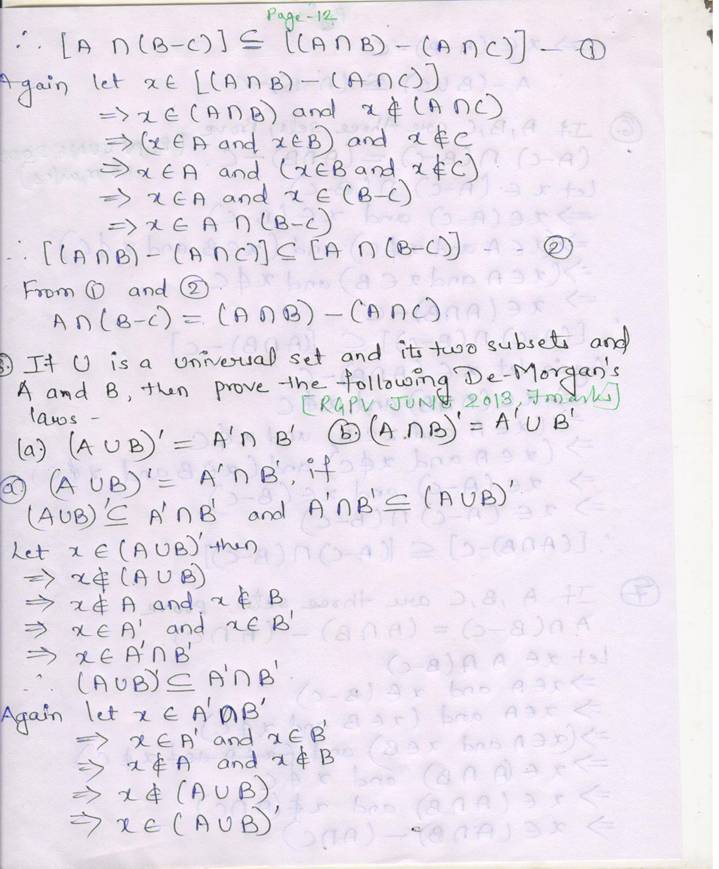 Page-12
∴ [A ∩ (B-C)] ⊆ [(A∩B) - (A∩C)] — ①
Again let x∈ [(A∩B) - (A∩C)]
⇒ x∈ (A∩B) and x∉ (A∩C)
⇒ (x∈A and x∈B) and x∉C
⇒ x∈A and (x∈B and x∉C)
⇒ x∈A and x∈ (B-C)
⇒ x∈ A ∩ (B-C)
∴ [(A∩B) - (A∩C)] ⊆ [A ∩ (B-C)] - - ②
From ① and ②
A∩(B-C) = (A∩B) - (A∩C)
8. If U is a universal set and its two subsets and
A and B, then prove the following De-Morgan's
laws - [RGPV JUNE 2013, 7marks]
(a.) (A∪B)' = A'∩B' (b.) (A∩B)' = A'∪B'
(a) (A∪B)' = A'∩B', if
(A∪B)' ⊆ A'∩B' and A'∩B' ⊆ (A∪B)'
Let x∈(A∪B)' then
⇒ x∉ (A∪B)
⇒ x∉A and x∉B
⇒ x∈A' and x∈B'
⇒ x∈A'∩B'
∴ (A∪B)' ⊆ A'∩B'
Again let x∈ A'∩B'
⇒ x∈A' and x∈B'
⇒ x∉A and x∉B
⇒ x∉ (A∪B)
⇒ x∈ (A∪B)'